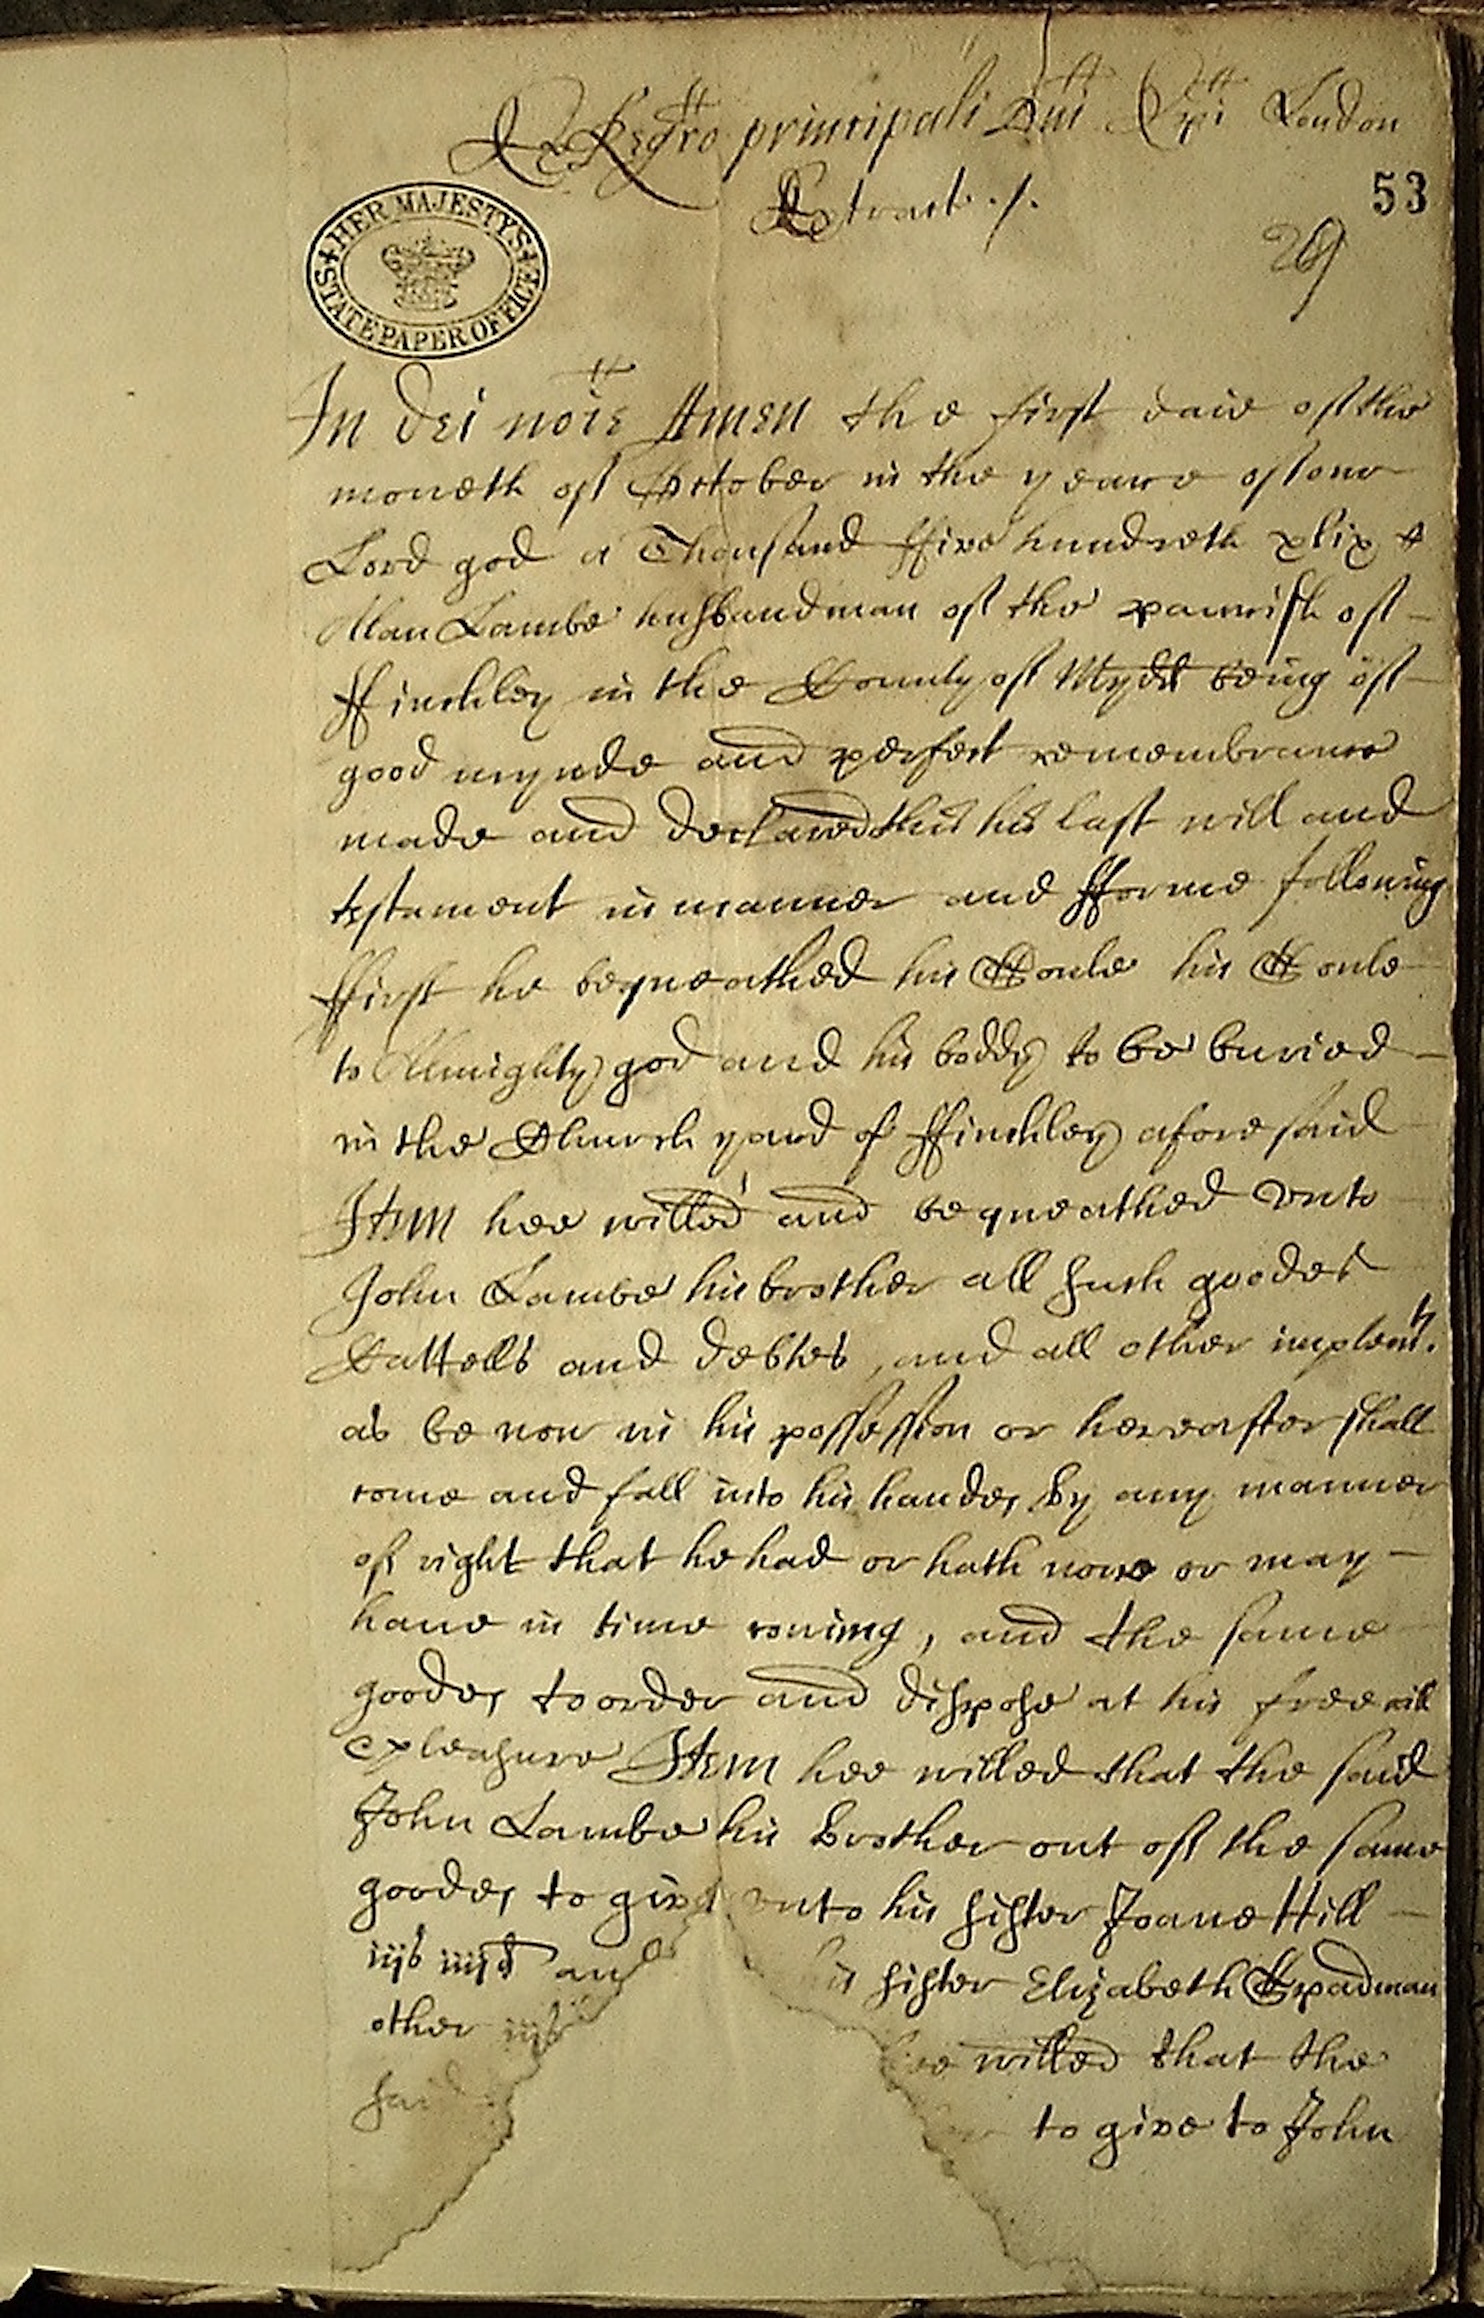 Ex Regro principali Dni Epi London
Extract ./.
53
29
HER MAJESTYS STATE PAPER OFFICE
In dei noie Amen the first daie of the
moneth of October in the yeare of our
Lord god a Thousand ffive hundreth xlix
Alan Lambe husbandman of the parrish of
ffinchley in the County of Mydd being of
good mynde and perfect remembrance
made and declared this his last will and
testament in manner and fforme following
ffirst he bequeathed his Soule his Soule
to Almighty god and his boddy to be buried
in the Church yard of ffinchley aforesaid
Item hee willed and bequeathed vnto
John Lambe his brother all such goodes
Cattells and debtes, and all other implemts.
as be now in his possession or hereafter shall
come and fall into his handes by any manner
of right that he had or hath nowe or may
haue in time coming, and the same
goodes to order and dispose at his free will
& pleasure Item hee willed that the said
John Lambe his Brother out of the same
goodes to give vnto his sister Joane Hill
iijs iiijd and his sister Elizabeth Spadman
other iijs hee willed that the
said to give to John